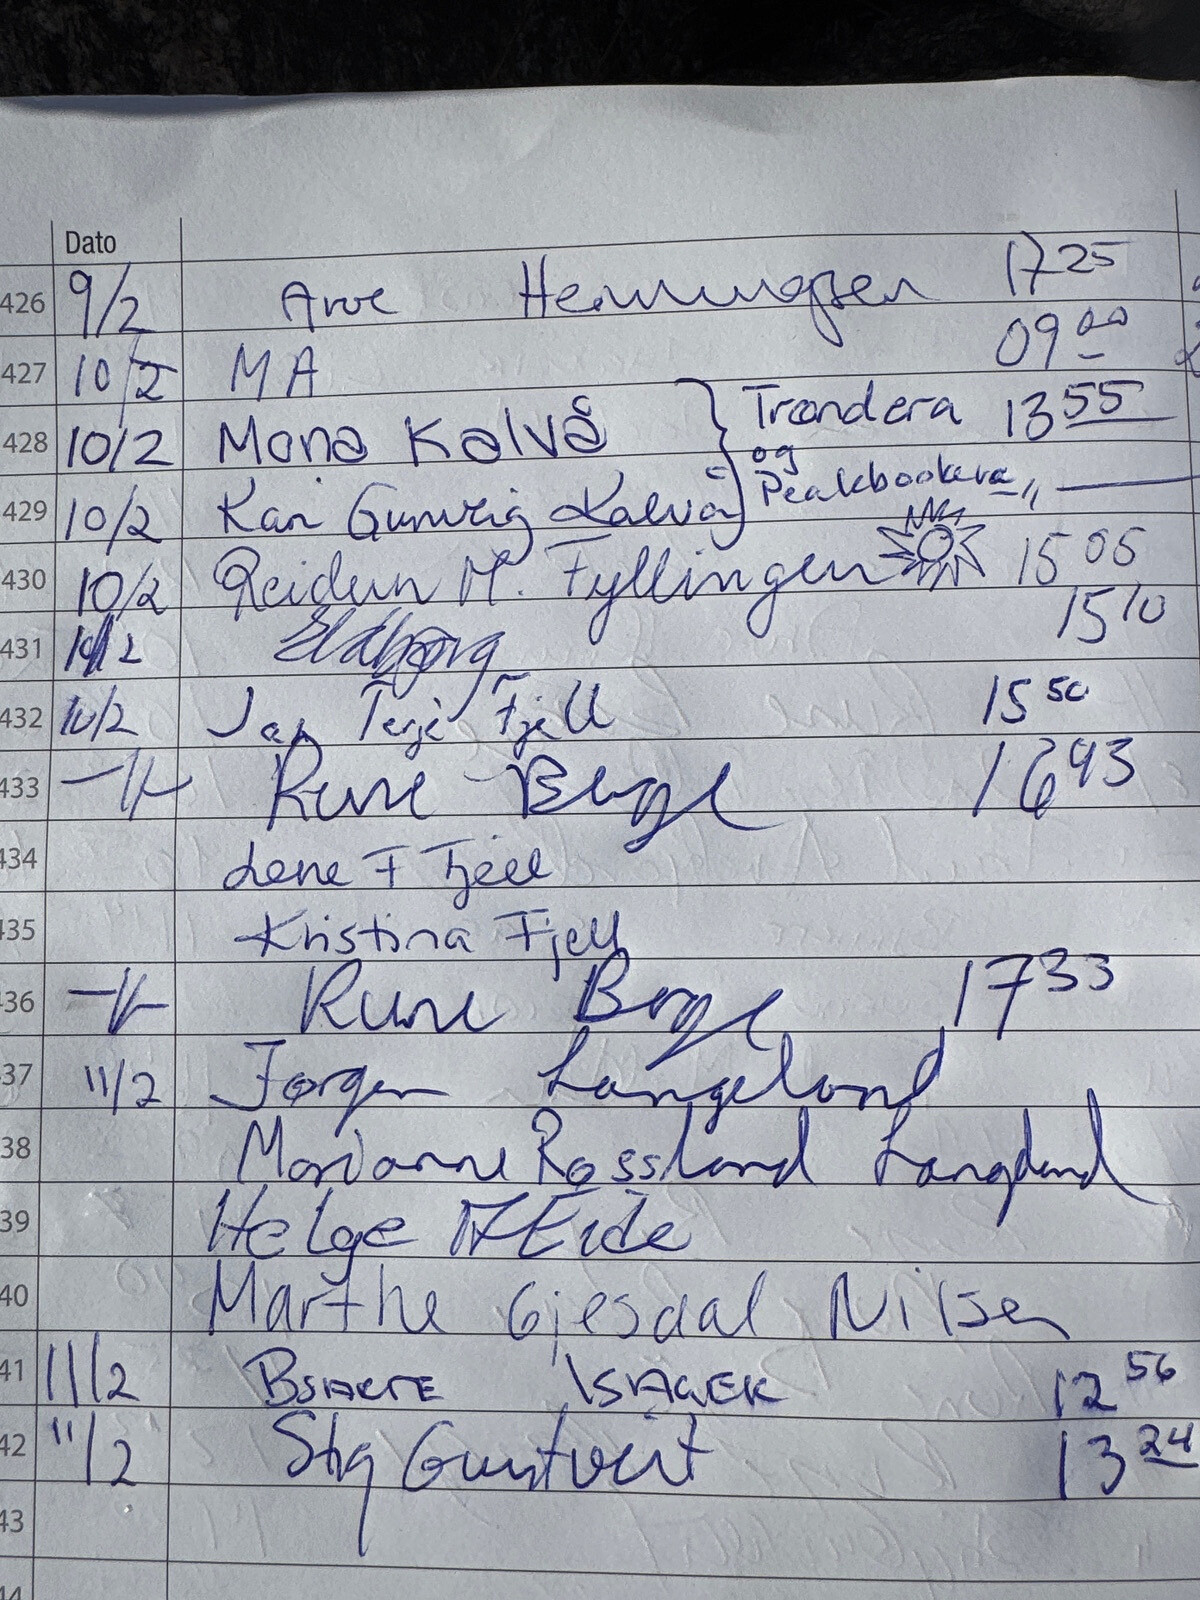 Dato
426 9/2 Arve Henningsen 17 25
427 10/2 MA 09 00
428 10/2 Mona Kalvå } Trøndera 13 55
og
429 10/2 Kari Gunveig Kalvå Peakbookera -"-
430 10/2 Reidun M. Fyllingen 15 05
431 10/2 Eldbjørg 15 10
432 10/2 Jan Terje Fjell 15 50
433 -"- Rune Berge 16 43
434 Lene F Fjell
435 Kristina Fjell
436 -"- Rune Berge 17 33
37 11/2 Jørgen Langeland
38 Marianne Rossland Langeland
39 Helge Eide
40 Marthe Gjesdal Nilsen
41 11/2 12 56
42 11/2 Stig 13 24
43
44